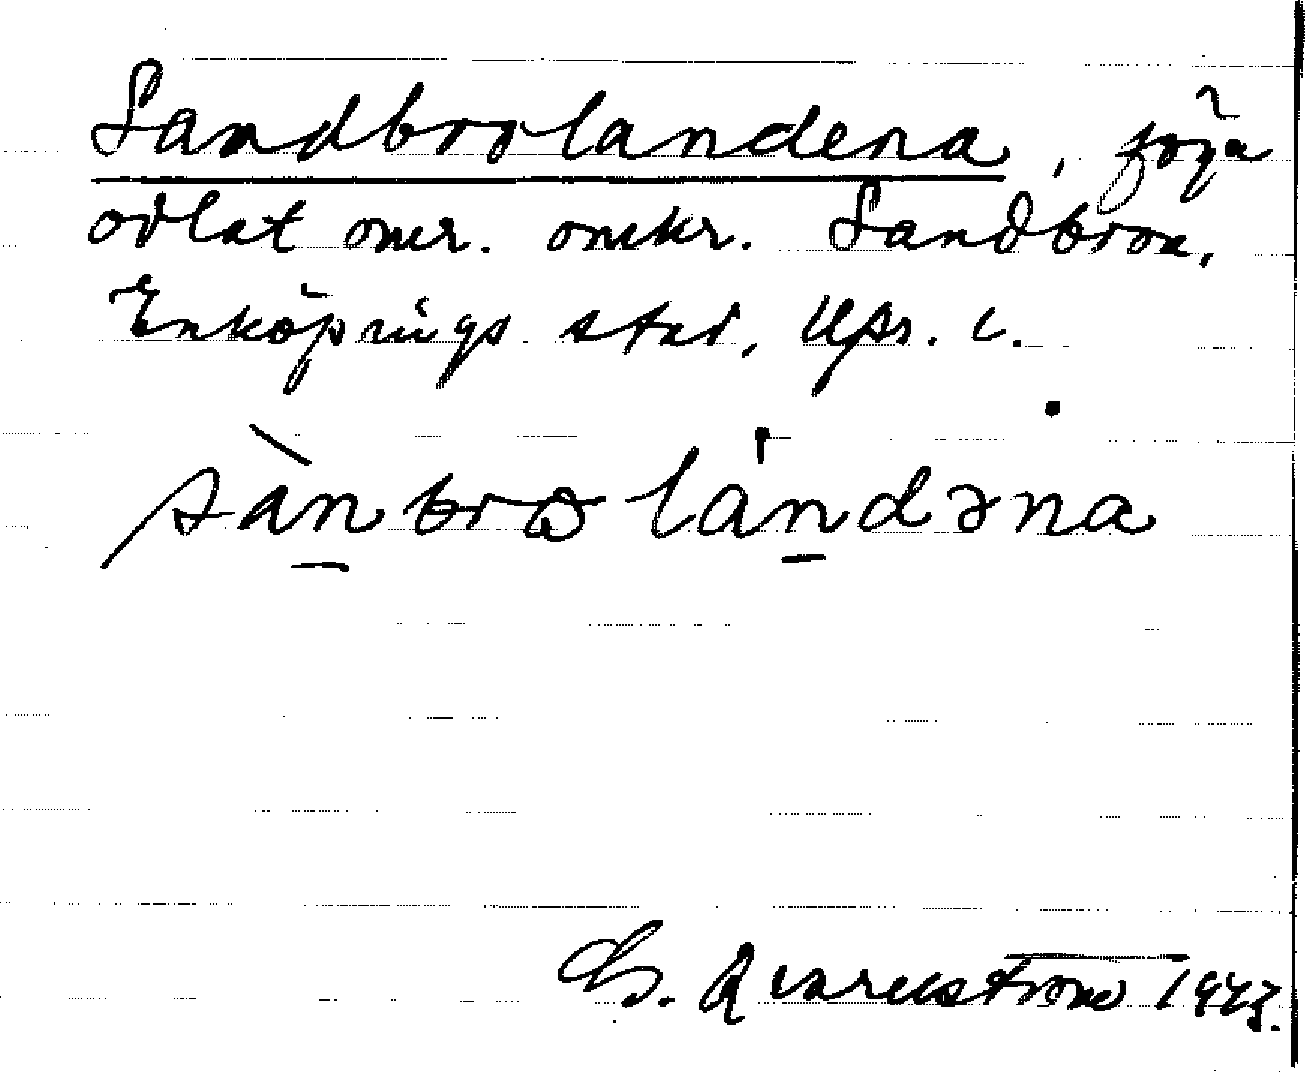 Sandbrolandena, föga
odlat omr. omkr. Sandbron,
Enköpings stad, Upr. l.
sànbro lándəna
G. Qvarnström 1943.